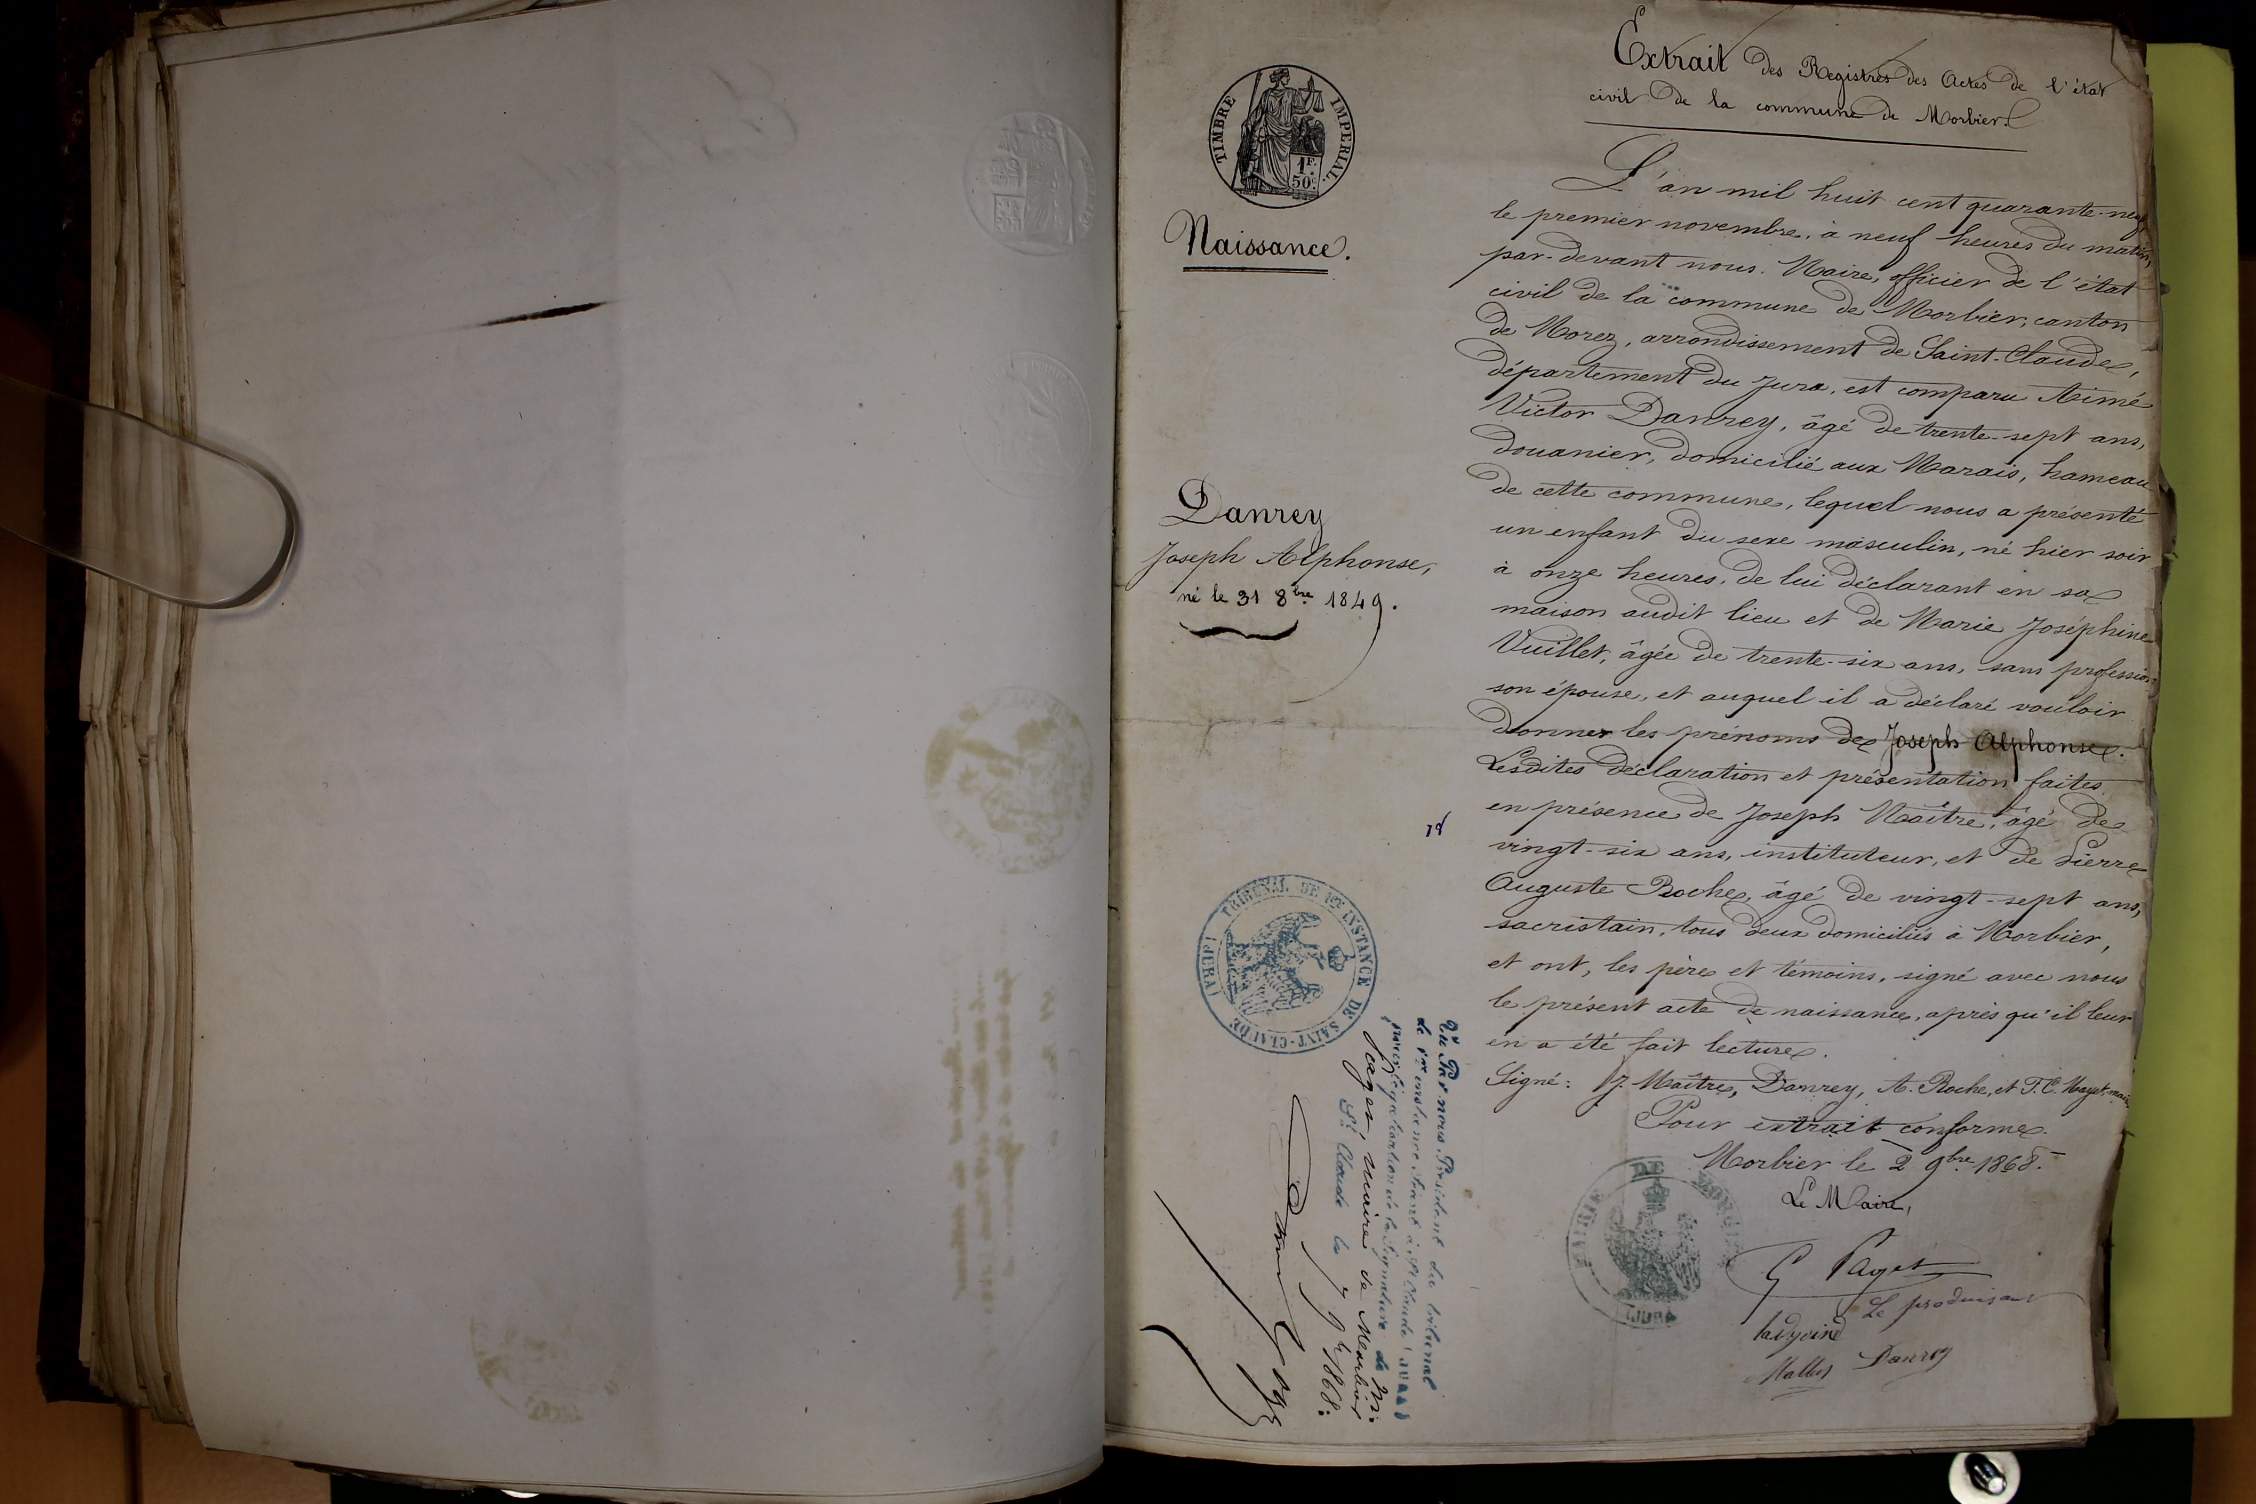 Extrait des Registres des Actes de l'état
civil de la commune de Morbier.
TIMBRE IMPERIAL.
1F.
50c.
Naissance.
Danrey
Joseph Alphonse,
né le 31 8bre 1849.
L'an mil huit cent quarante-neuf
le premier novembre, à neuf heures du matin,
par-devant nous. Maire, officier de l'état
civil de la commune de Morbier, canton
de Morez, arrondissement de Saint-Claude,
département du Jura, est comparu Aimé
Victor Danrey, âgé de trente-sept ans,
douanier, domicilié aux Marais, hameau
de cette commune, lequel nous a présenté
un enfant du sexe masculin, né hier soir
à onze heures, de lui déclarant en sa
maison audit lieu et de Marie Joséphine
Vuillet, âgée de trente-six ans, sans profession
son épouse, et auquel il a déclaré vouloir
donner les prénoms de Joseph Alphonse.
Lesdites déclaration et présentation faites
en présence de Joseph Maître, âgé de
vingt-six ans, instituteur, et de Pierre
Auguste Roche, âgé de vingt-sept ans,
sacristain, tous deux domiciliés à Morbier,
et ont, les père et témoins, signé avec nous
le présent acte de naissance, après qu'il leur
en a été fait lecture.
Signé: J. Maître, Danrey, A. Roche, et F. C. Mayet, maire
Pour extrait conforme.
Morbier le 2 9bre 1868.
Le Maire,
G Paget
Le produisant
Danrey
MAIRIE DE
(JURA)
TRIBUNAL DE 1ERE INSTANCE DE SAINT-CLAUDE
(JURA)
Vu Par nous Président du tribunal
de 1re instance séant à St Claude (JURA)
pour légalisation de la Signature de Mr.
Paget, maire de Morbier
St Claude le 7 9bre 1868.